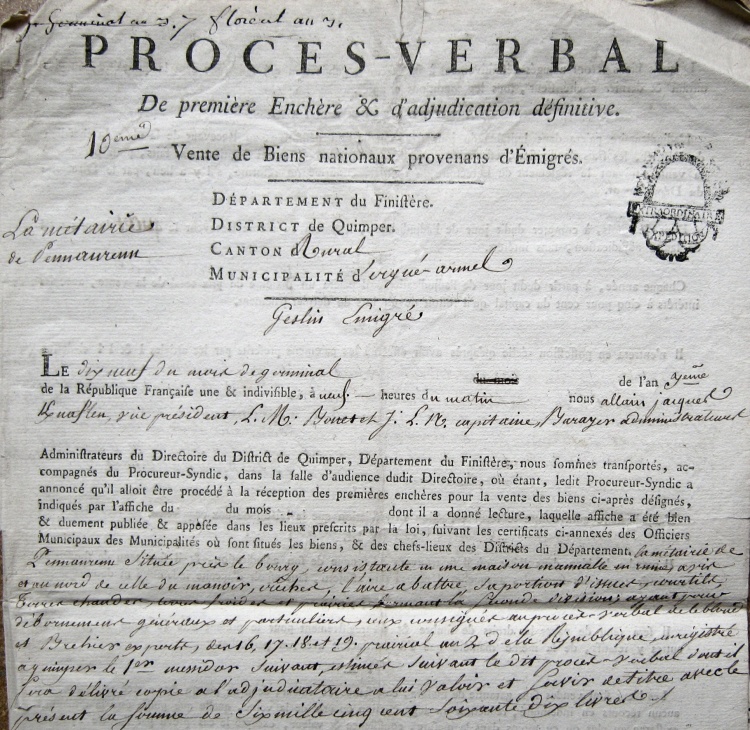 germinal an 3. 7 floréal an 3.
PROCES-VERBAL
De première Enchère & d'adjudication définitive.
10eme Vente de Biens nationaux provenans d'Émigrés.
DÉPARTEMENT du Finistère.
DISTRICT de Quimper.
CANTON d Rural
MUNICIPALITÉ d'ergué-armel
La métairie
de Pennaurenn
EXTRAORDINAIRE
EXPEDITION
Geslin Emigré
LE dix neuf du mois de germinal du mois de l'an 3eme
de la République Française une & indivisible, à neuf heures du matin nous allain jacques
vice président, L. M. Bonet et J. L. N. capitaine, Barazer administrateurs
Administrateurs du Directoire du District de Quimper, Département du Finistère, nous sommes transportés, ac-
compagnés du Procureur-Syndic, dans la salle d'audience dudit Directoire, où étant, ledit Procureur-Syndic a
annoncé qu'il alloit être procédé à la réception des premières enchères pour la vente des biens ci-après désignés,
indiqués par l'affiche du du mois dont il a donné lecture, laquelle affiche a été bien
& duement publiée & apposée dans les lieux prescrits par la loi, suivant les certificats ci-annexés des Officiers
Municipaux des Municipalités où sont situés les biens, & des chefs-lieux des Districts du Département. la métairie de
Pennaurenn située près le bourg, consistante en une maison manalle en ruine, axis
et au nord de celle du manoir, crèches, l'aire a battre, sa portion d'issues, courtils,
Terres chaudes, terres froides et prairies formant la seconde divisions ayant pour
débornement généraux et particuliers, ceux consignés au procès-verbal de le
et Brehier experts, des 16, 17. 18 et 19. prairial an 2 de la République, enregistré
a quimper le 1er messidor suivant, estimés suivant le dit procès verbal dont il
sera délivré copie a l'adjudicataire a lui valoir et servir de titre avec le
présent la somme de Six mille cinq cent soixante dix livres